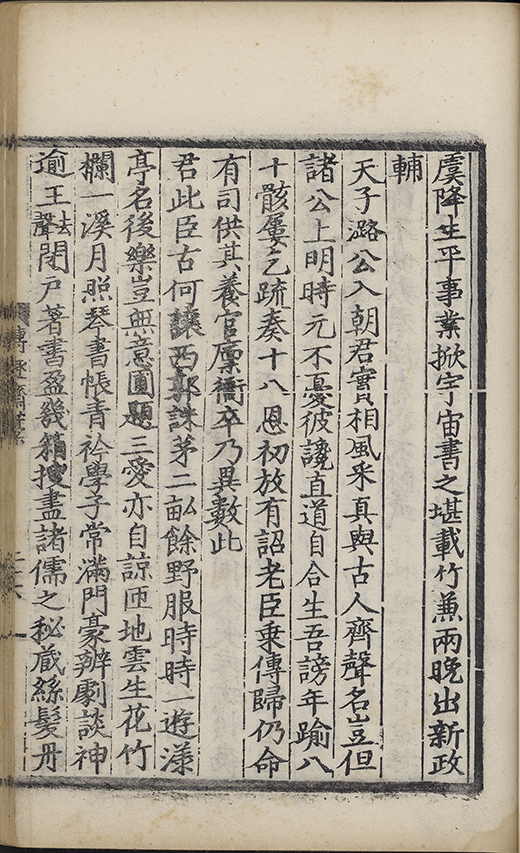 虞降生平事業掀宇宙書之堪載竹兼兩晚出新政
輔
天子潞公入朝君實相風采真與古人齊聲名豈但
諸公上明時元不憂彼讒直道自合生吾謗年踰八
十骸屢乞疏奏十八恩初放有詔老臣乗傳歸仍命
有司供其養官廩衛卒乃異數此
君此臣古何讓西郭誅茅二畝餘野服時時一遊漾
亭名後樂豈無意圃題三愛亦自諒匝地雲生花竹
欄一溪月照琴書帳青衿學子常滿門豪辨劇談神
逾王去聲閉戸著書盈幾箱搜盡諸儒之秘藏絲髮丹